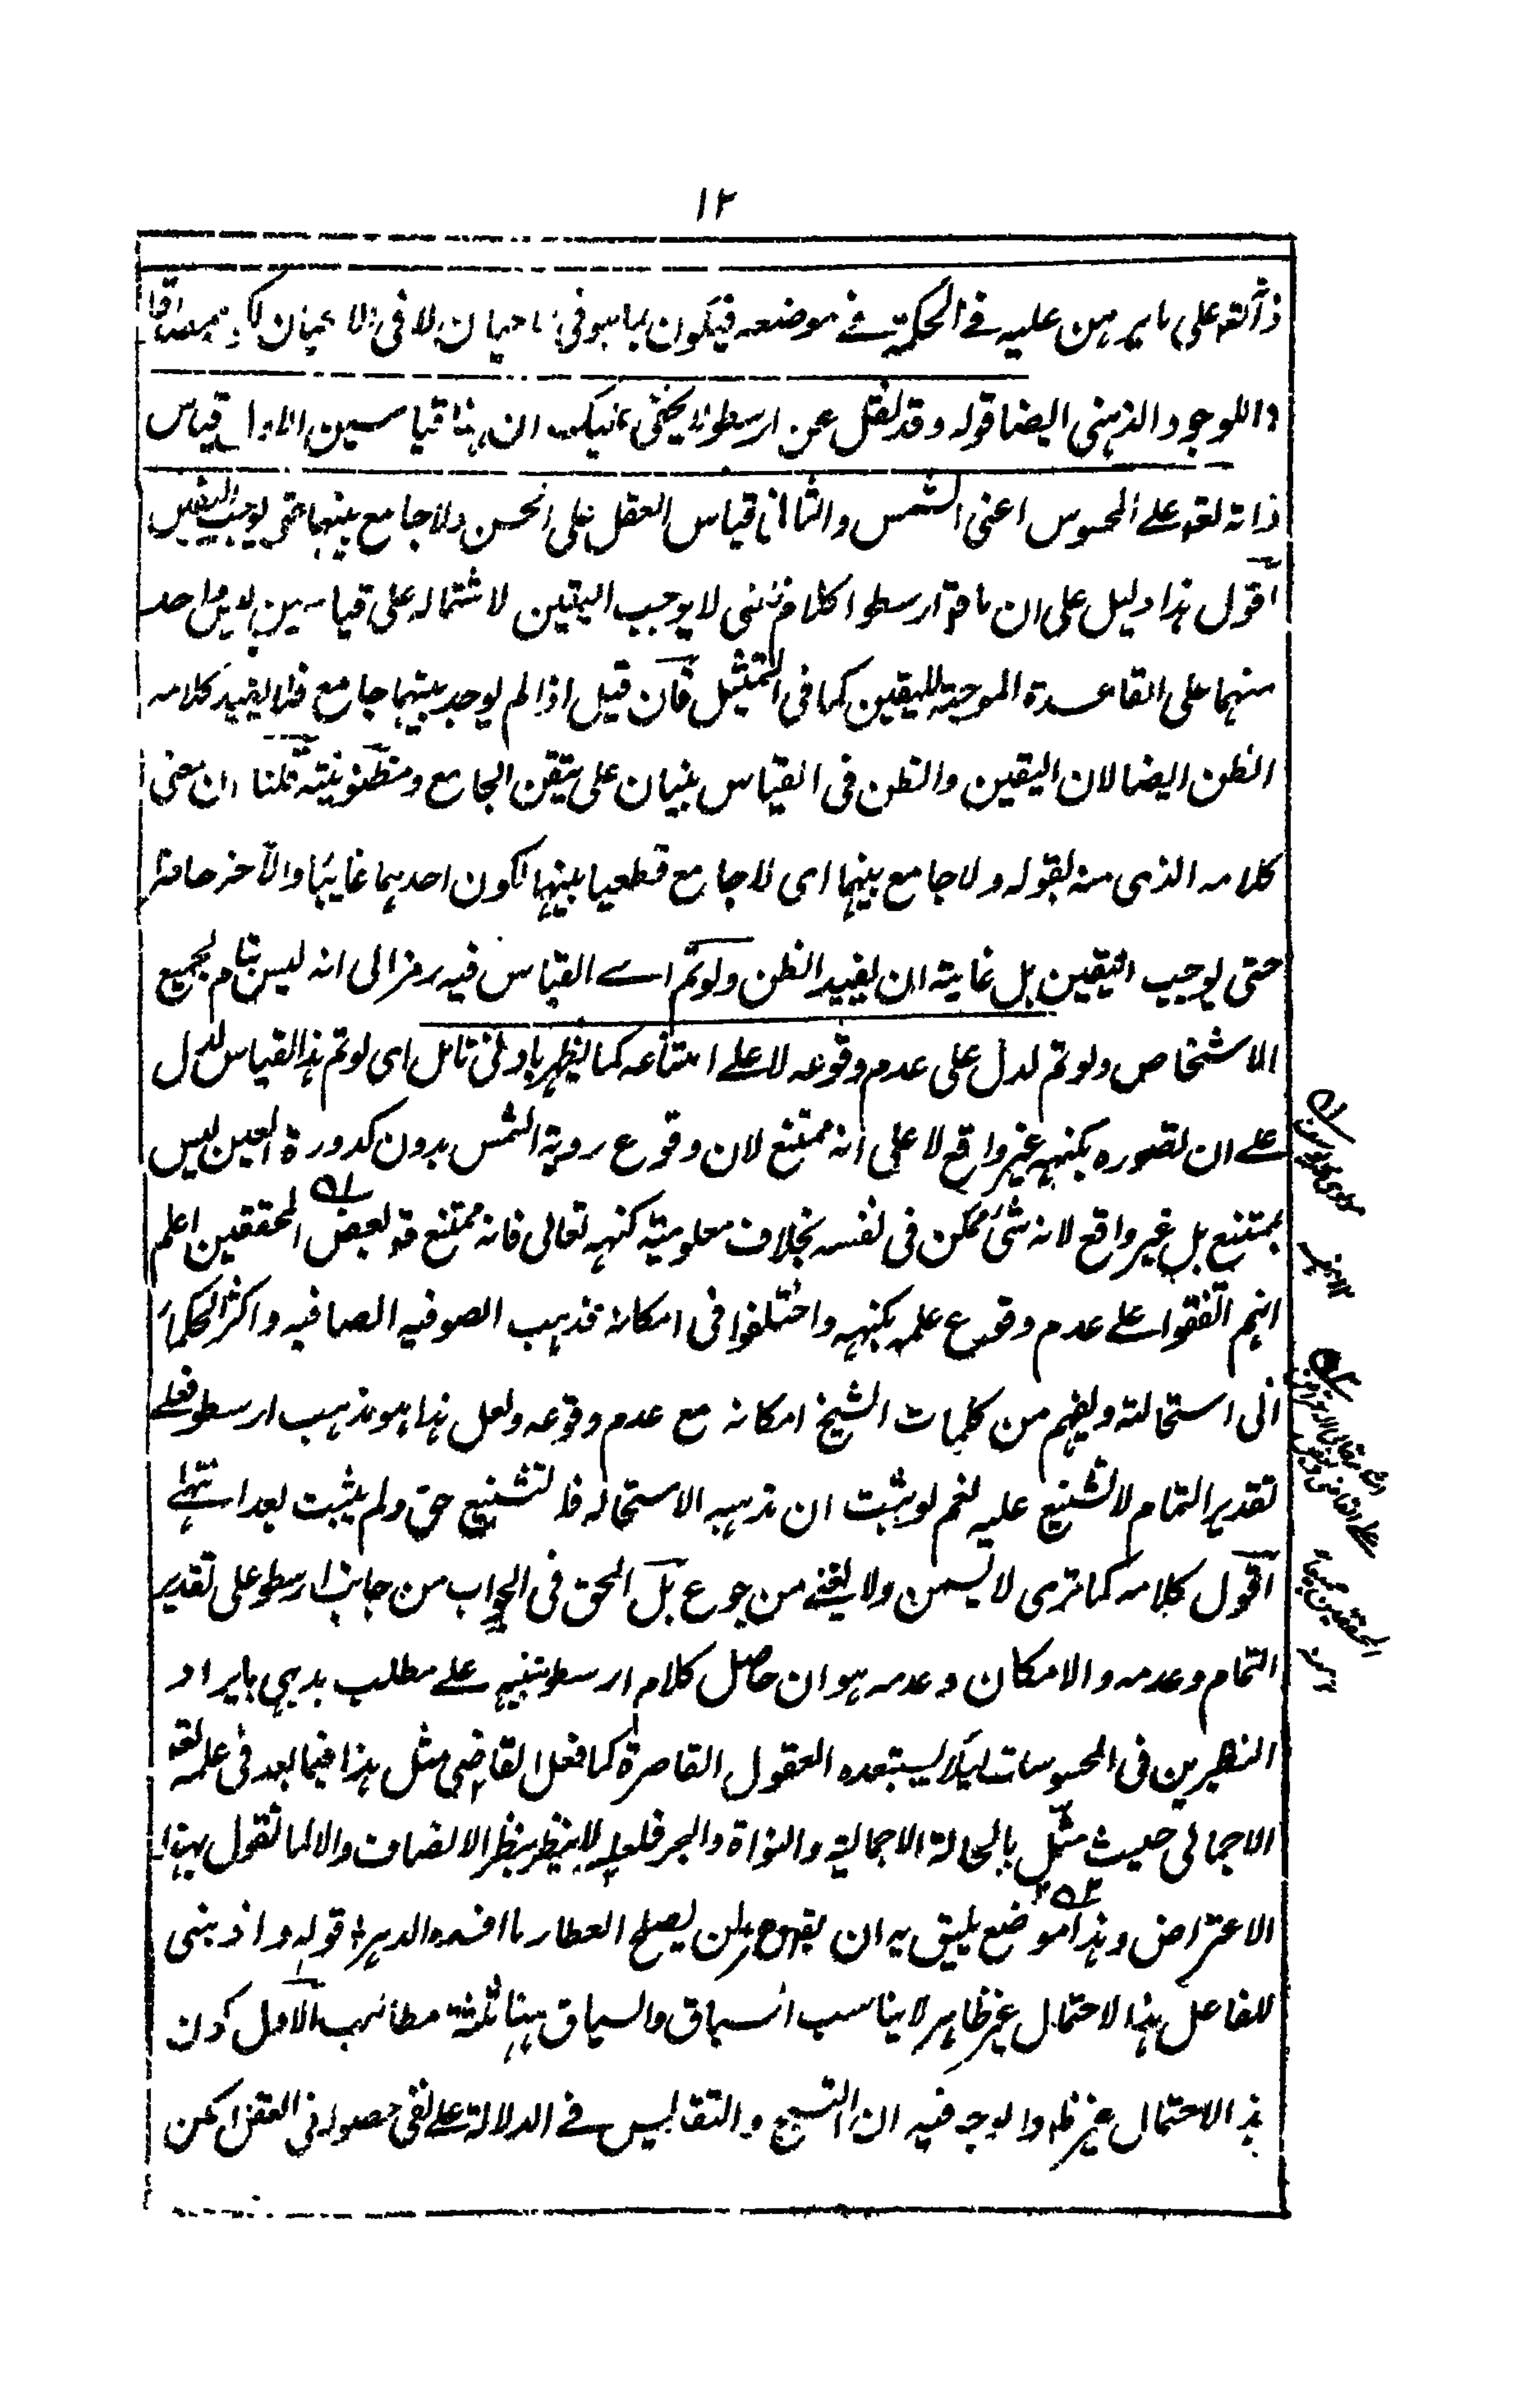 ١٢
ذاته تعم على ما يبرهن عليه فے الحكمة فے موضعه فيكون بما هو فى الاعيان لا فى الاعيان
للوجود الذهنى ايضا قوله وقد نقل عن ارسطو لا يخفى عليك ان هنا قياسين الاول قياس
ذاته تعم علے المحسوس اعنى الشمس والثانى قياس العقل على الحس ولا جامع بينهما حتى يوجب اليقين
اقول هذا دليل على ان ما قاله ارسطو كلام ظنى لا يوجب اليقين لاشتماله على قياسين ليس واحد
منهما على القاعدة الموجبة لليقين كما فى التمثيل فان قيل اذا لم يوجد بينهما جامع فلا يفيد كلامه
الظن ايضا لان اليقين والظن فى القياس بنيان على تيقن الجامع ومظنونيته قلنا ان معنى
كلامه الذى منه لقوله ولا جامع بينهما اى لا جامع قطعيا بينهما لكون احدهما غايبا والآخر حاضرا
حتى يوجب اليقين بل غاية ان يفيد الظن ولو تم اے القياس فيه رمز الى انه ليس بتام لجميع
الاشخاص ولو تم لدل على عدم وقوعه لا علے امتناعه كما يظهر بادنى تامل اى لو تم هذا القياس لدل
علے ان تصوره بكنهه غير واقع لا على انه ممتنع لان وقوع روية الشمس بدون كدورة العين ليس
بممتنع بل غير واقع لانه شئ ممكن فى نفسه بخلاف معلومية كنهه تعالى فانه ممتنع قه لبعض المحققين اعلم
انهم اتفقوا علے عدم وقوع علمه بكنهه واختلفوا فى امكانه فذهب الصوفيه الصافيه واكثر الحكماء
الى استحالته ويفهم من كلمات الشيخ امكانه مع عدم وقوعه ولعل هذا هو مذهب ارسطو فعلے
تقدير التمام لا تشنيع عليه نعم لو يثبت ان مذهبه الاستحاله فالتشنيع حق ولم يثبت بعد انتهے
اقول كلامه كما ترى لا يسمن ولا يغنے من جوع بل الحق فى الجواب من جانب ارسطو على تقدير
التمام وعدمه والامكان وعدمه هو ان حاصل كلام ارسطو تنبيه علے مطلب بديهى بايراد
النظيرين فى المحسوسات ليلا يستبعده العقول القاصرة كما فعل القاضى مثل هذا فيما بعد فى علمه تعم
الاجمالى حيث مثل بالحالة الاجمالية والنواة والبحر فلعله لا ينظر بنظر الانصاف والا لما تقول بهذا
الاعتراض وهذا موضع يليق به ان يقرء لن يصلح العطار ما افسده الدهر قوله واذ بنى
للفاعل هذا الاحتمال غير ظاهر لا يناسب السباق والسياق ههنا ثلثة مطالب الاول كون
هذا الاحتمال غير ظاهر والوجه فيه ان التسبيح والتقديس فے الدلالة علے نفى حصوله فى العقل